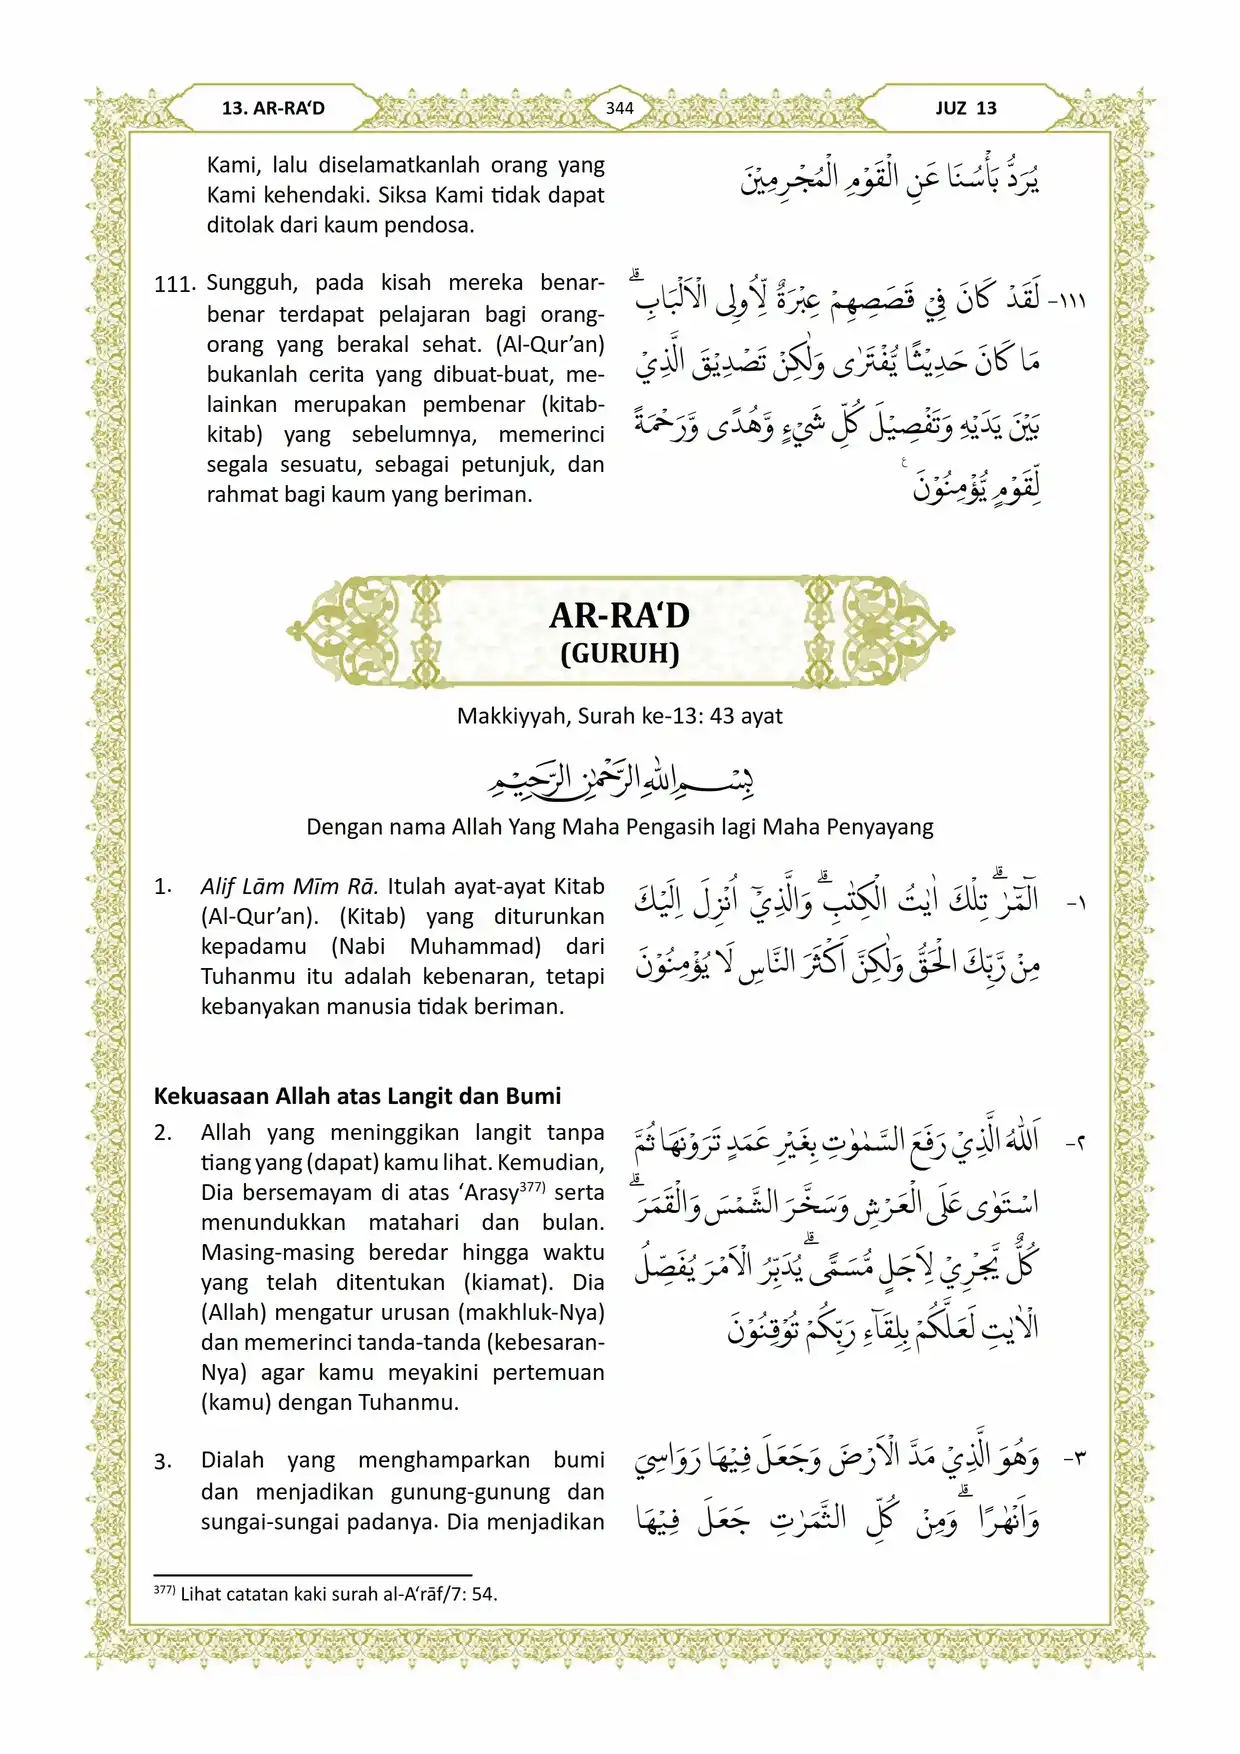 13. AR-RA‘D
344
JUZ 13
Kami, lalu diselamatkanlah orang yang
Kami kehendaki. Siksa Kami tidak dapat
ditolak dari kaum pendosa.
يُرَدُّ بَأْسُنَا عَنِ الْقَوْمِ الْمُجْرِمِيْنَ
111. Sungguh, pada kisah mereka benar-
benar terdapat pelajaran bagi orang-
orang yang berakal sehat. (Al-Qur’an)
bukanlah cerita yang dibuat-buat, me-
lainkan merupakan pembenar (kitab-
kitab) yang sebelumnya, memerinci
segala sesuatu, sebagai petunjuk, dan
rahmat bagi kaum yang beriman.
١١١- لَقَدْ كَانَ فِيْ قَصَصِهِمْ عِبْرَةٌ لِّاُولِى الْاَلْبَابِۗ
مَا كَانَ حَدِيْثًا يُّفْتَرٰى وَلٰكِنْ تَصْدِيْقَ الَّذِيْ
بَيْنَ يَدَيْهِ وَتَفْصِيْلَ كُلِّ شَيْءٍ وَّهُدًى وَّرَحْمَةً
لِّقَوْمٍ يُّؤْمِنُوْنَ ࣖ
AR-RA‘D
(GURUH)
Makkiyyah, Surah ke-13: 43 ayat
بِسْمِ اللّٰهِ الرَّحْمٰنِ الرَّحِيْمِ
Dengan nama Allah Yang Maha Pengasih lagi Maha Penyayang
1. Alif Lām Mīm Rā. Itulah ayat-ayat Kitab
(Al-Qur’an). (Kitab) yang diturunkan
kepadamu (Nabi Muhammad) dari
Tuhanmu itu adalah kebenaran, tetapi
kebanyakan manusia tidak beriman.
١- الۤمّۤرٰۗ تِلْكَ اٰيٰتُ الْكِتٰبِۗ وَالَّذِيْٓ اُنْزِلَ اِلَيْكَ
مِنْ رَّبِّكَ الْحَقُّ وَلٰكِنَّ اَكْثَرَ النَّاسِ لَا يُؤْمِنُوْنَ
Kekuasaan Allah atas Langit dan Bumi
2. Allah yang meninggikan langit tanpa
tiang yang (dapat) kamu lihat. Kemudian,
Dia bersemayam di atas ‘Arasy377) serta
menundukkan matahari dan bulan.
Masing-masing beredar hingga waktu
yang telah ditentukan (kiamat). Dia
(Allah) mengatur urusan (makhluk-Nya)
dan memerinci tanda-tanda (kebesaran-
Nya) agar kamu meyakini pertemuan
(kamu) dengan Tuhanmu.
٢- اَللّٰهُ الَّذِيْ رَفَعَ السَّمٰوٰتِ بِغَيْرِ عَمَدٍ تَرَوْنَهَا ثُمَّ
اسْتَوٰى عَلَى الْعَرْشِ وَسَخَّرَ الشَّمْسَ وَالْقَمَرَۗ
كُلٌّ يَّجْرِيْ لِاَجَلٍ مُّسَمًّىۗ يُدَبِّرُ الْاَمْرَ يُفَصِّلُ
الْاٰيٰتِ لَعَلَّكُمْ بِلِقَاۤءِ رَبِّكُمْ تُوْقِنُوْنَ
3. Dialah yang menghamparkan bumi
dan menjadikan gunung-gunung dan
sungai-sungai padanya. Dia menjadikan
٣- وَهُوَ الَّذِيْ مَدَّ الْاَرْضَ وَجَعَلَ فِيْهَا رَوَاسِيَ
وَاَنْهٰرًاۗ وَمِنْ كُلِّ الثَّمَرٰتِ جَعَلَ فِيْهَا
377) Lihat catatan kaki surah al-A‘rāf/7: 54.